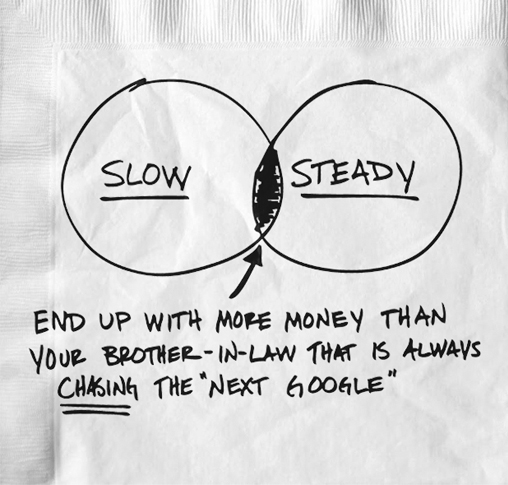 SLOW
STEADY
END UP WITH MORE MONEY THAN
YOUR BROTHER-IN-LAW THAT IS ALWAYS
CHASING THE "NEXT GOOGLE"